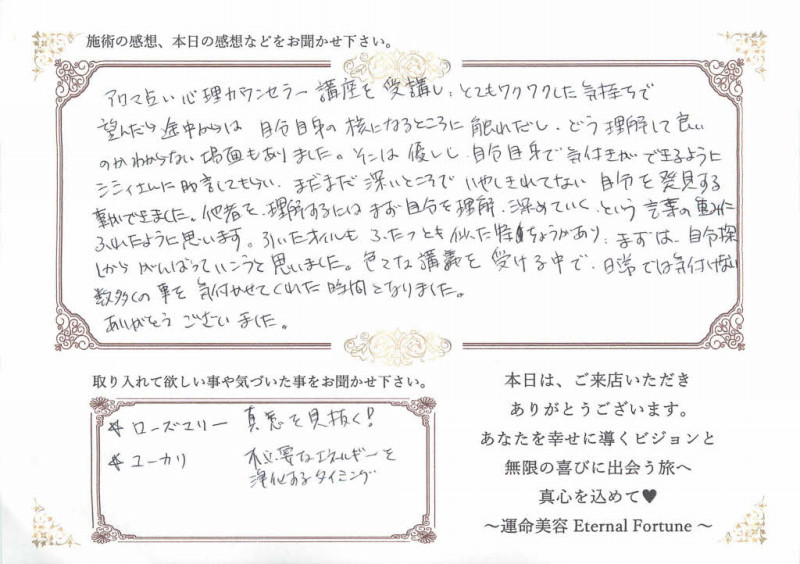 施術の感想、本日の感想などをお聞かせ下さい。
アロマ占い心理カウンセラー講座を受講し、とてもワクワクした気持ちで
望んだら途中からは自分自身の核になるところに触れだし、どう理解して良い
のかわからない場面もありました。そこは優しく自分自身で気付きができるように
助言してもらい、まだまだ深いところでいやしきれてない自分を発見する
事ができました。他者を理解するにはまず自分を理解、深めていくという言葉の重みに
ふれたように思います。引いたオイルもふたつとも似た特ちょうがあり、まずは、自分探
しからがんばっていこうと思いました。色々な講義を受ける中で、日常では気付けない
数多くの事を気付かせてくれた時間となりました。
ありがとうございました。
取り入れて欲しい事や気づいた事をお聞かせ下さい。
☆ローズマリー 真意を見抜く!
☆ユーカリ 不必要なエネルギーを
浄化するタイミング
本日は、ご来店いただき
ありがとうございます。
あなたを幸せに導くビジョンと
無限の喜びに出会う旅へ
真心を込めて♥
～運命美容 Eternal Fortune～